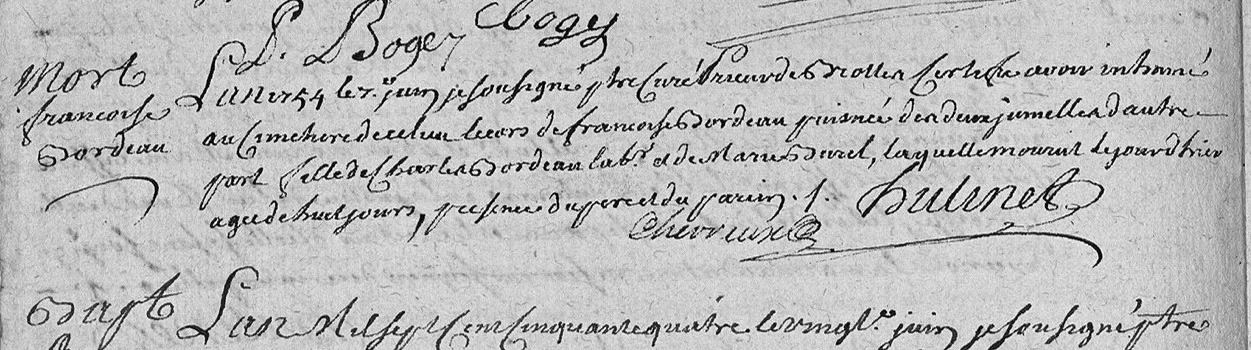 P. Boger Cogy
Mort
francoise
Bordeau
Lan 1754 le 7.e juin je sousigné ptre Curé Prieur de certifie avoir inhumé
au Cimetiere de ce lieu le cors de francoise Bordeau puisnée des deux jumelles d'autre
part fille de Charles Bordeau lab.r et de Marie Burel, laquelle mourut le jour d'hier
agée de huit jours, presence du pere et du parein. /. hulinet
Chevreuse
Bapt Lan Mil sept Cent Cinquante quatre le vingt.e juin je sousigné ptre